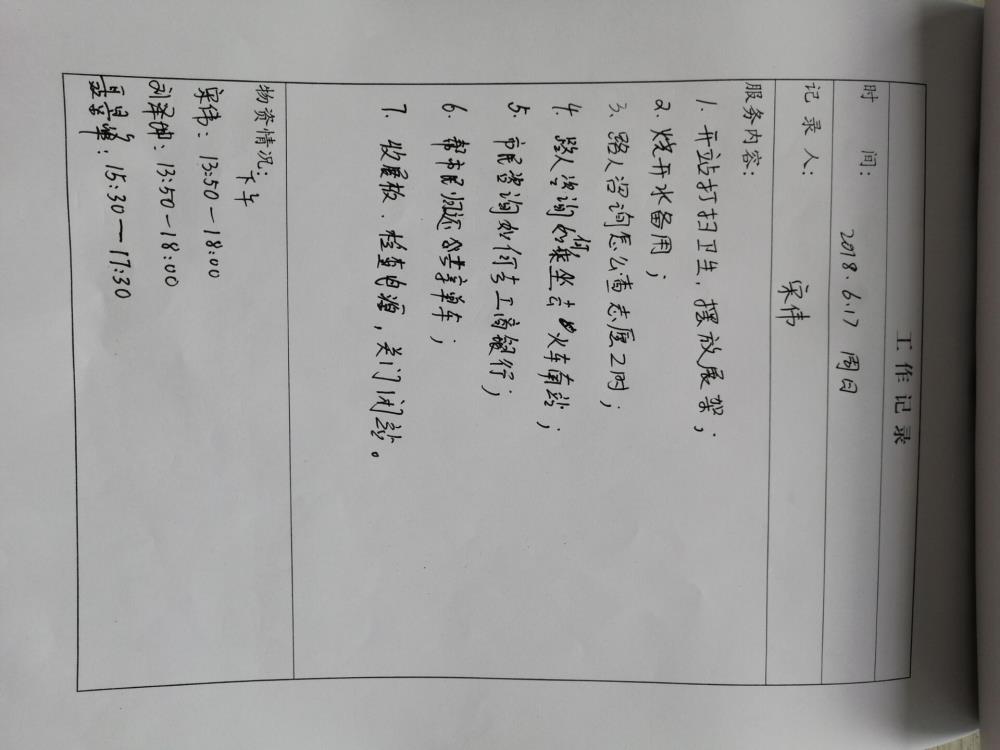 工作记录
时 间: 2018.6.17 周日
记 录 人: 宋伟
服务内容:
1. 开站打扫卫生,摆放展架;
2. 烧开水备用;
3. 路人咨询怎么查志愿工时;
4. 路人咨询如何乘坐去火车南站;
5. 市民咨询如何去工商银行;
6. 帮市民归还公共单车;
7. 收展板、检查电源,关门闭站。
物资情况: 下午
宋伟: 13:50—18:00
刘泽坤: 13:50—18:00
: 15:30—17:30